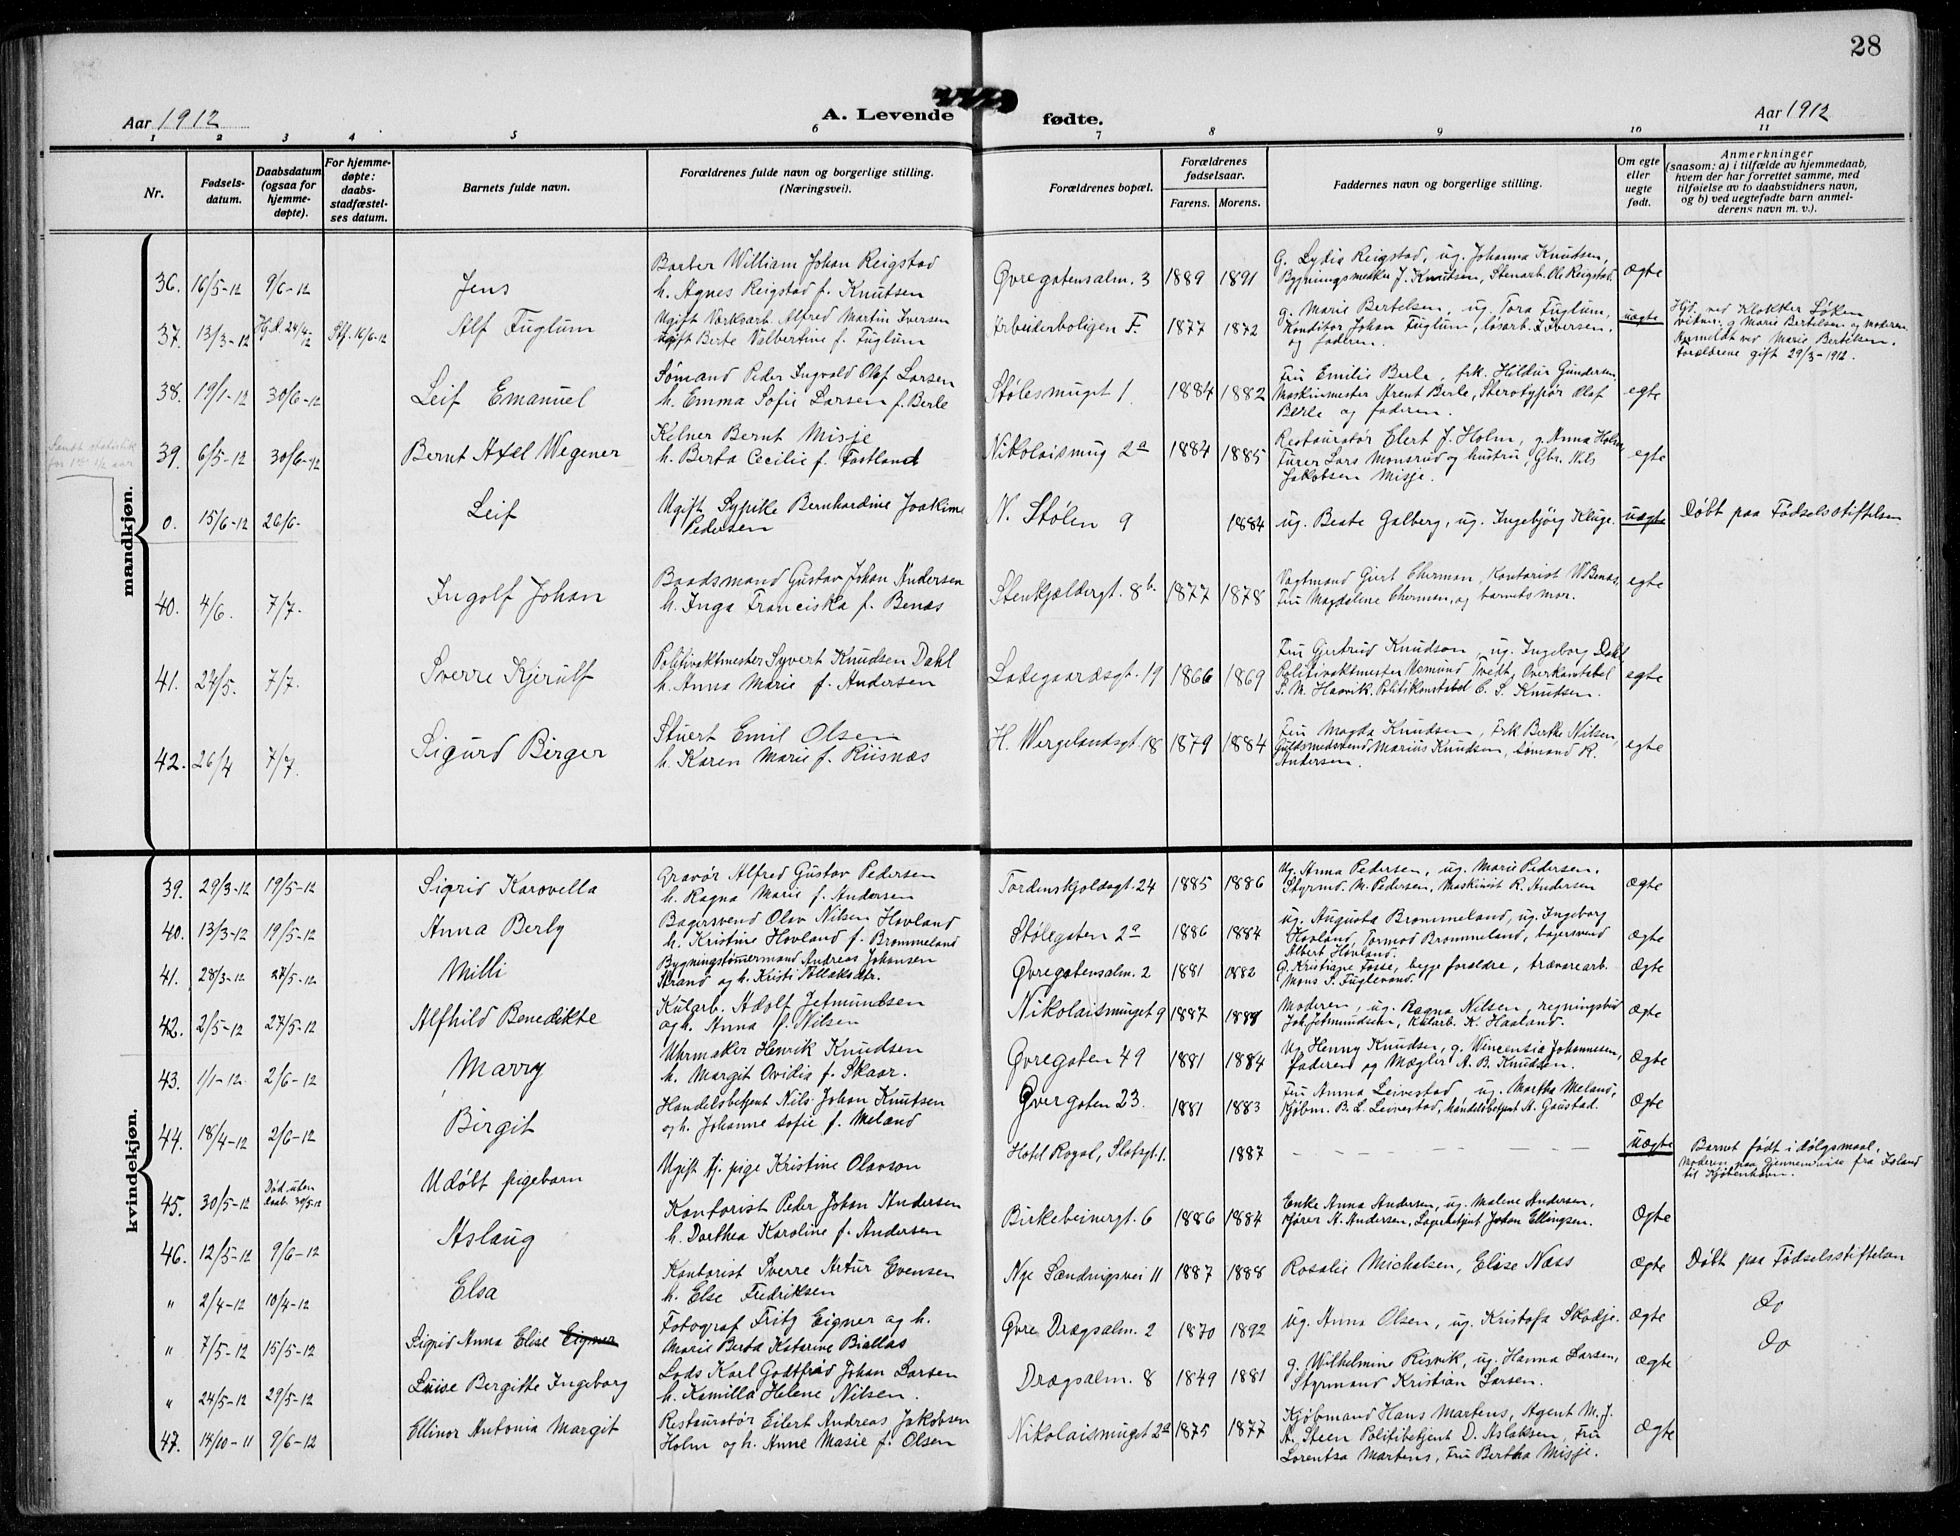 28
Aar 1912
A. Levende fødte.
Aar 1912
1 2 3 4 5 6 7 8 9 10 11
Nr.
Fødsels-
datum.
Daabsdatum
(ogsaa for
hjemme-
døpte).
For hjemme-
døpte:
daabs-
stadfæstel-
ses datum.
Barnets fulde navn.
Forældrenes fulde navn og borgerlige stilling.
(Næringsvei).
Forældrenes bopæl.
Forældrenes
fødselsaar.
Farens. Morens.
Faddernes navn og borgerlige stilling.
Om egte
eller
uegte
født.
Anmerkninger
(saasom: a) i tilfælde av hjemmedaab,
hvem der har forrettet samme, med
tilføielse av to daabsvidners navn,
og b) ved uegtefødte barn anmel-
derens navn m. v.).
mandkjøn.
36. 16/5-12 9/6-12 Jens
Barber William Johan Reigstad
h. Agnes Reigstad f. Knutsen
Øvregatensalm. 3 1889 1891
g. Lydia Reigstad, ug. Johanna Knutsen,
Bygningssnekker J. Knutsen, Stenarb. Ole Reigstad.
Ægte
37. 13/3-12 Hjd. 24/4-12 Stf. 16/6-12 Alf Fuglum
Ugift Værksarb. Alfred Martin Iversen
Ugift Berte Valbertine f. Fuglum
Arbeiderboligen F. 1877 1872
g. Marie Bertelsen, ug. Tora Fuglum,
Konditor Johan Fuglum, løsarb. Iversen,
og faderen.
uægte
Hjd. ved Klokker Løken
vidner: g Marie Bertelsen og moderen.
Anmeldt ved Marie Bertelsen.
Forældrene gift 29/3-1912.
38. 19/1-12 30/6-12 Leif Emanuel
Sømand Peder Ingvald Olaf Larsen
h. Emma Sofie Larsen f. Berle
Stølesmuget 1. 1884 1882
Fru Emilie Berle, frk. Hildur Gundersen,
Maskinmester Arent Berle, Sterotypør Olaf
Berle og faderen.
egte
Sendt statistik
for 1ste 1/2 aar
39. 6/5-12 30/6-12 Bernt Axel Wegener
Kelner Bernt Misje
h. Berta Cecilie f. Fastland
Nikolaismug 2a 1884 1885
Restauratør Elert J. Holm, g. Anna Holm
Furer Lars Monsrud og hustru, Gbr. Nils
Jakobsen Misje.
egte
0. 15/6-12 26/6- Leif
Ugift Sypike Bernhardine Joakime
Pedersen
N. Stølen 9 1884
ug. Beate Galberg, ug. Ingebjörg Kluge.
uægte
Døbt paa Fødselsstiftelsen
40. 4/6. 7/7. Ingolf Johan
Baadsmand Gustav Johan Andersen
h. Inga Franciska f. Benæs
Stenkjeldergt. 8b. 1877 1878
Vagtmand Giert Cherman, Kontorist W Benæs,
Fru Magdalene Cherman, og barnets mor.
egte
41. 24/5. 7/7. Sverre Kjerulf
Politivaktmester Syvert Knudsen Dahl
h. Anna Marie f. Andersen
Ladegaardsgt. 19 1866 1869
Fru Gjertrud Knudson, ug. Ingeborg Dahl
Politivaktmester Asmund Tveit, Overkonstabel
S. M. Haavik, Politikonstabel C. S. Knutsen.
egte
42. 26/4 7/7. Sigurd Birger
Stuert Emil Olsen
h. Karen Marie f. Riisnæs
H. Wergelandsgt. 18 1879 1884
Fru Magda Knudsen, Frk Berthe Nilsen,
Guldsmedsvend Marius Knudsen, Sømand R.
Andersen.
egte
kvindekjøn.
39. 29/3-12 19/5-12 Sigrid Karovella
Gravör Alfred Gustav Pedersen
h. Ragna Marie f. Andersen
Tordenskjoldsgt. 24 1885 1886
Ug. Anna Pedersen, ug. Marie Pedersen.
Styrmd. M. Pedersen, Maskinist R. Andersen
Ægte
40. 13/3-12 19/5-12 Anna Berby
Bagersvend Olav Nilsen Hovland
h. Kristine Hovland f. Brommeland
Stølegaten 2a 1886 1884
ug. Augusta Brommeland, ug. Ingeborg
Hovland, Tormod Brommeland, bagersvend
Albert Hovland.
Ægte
41. 28/3-12 27/5-12 Milli
Bygningstømmermand Andreas Johansen
Strand og h. Kristi Aslaksdtr.
Øvregatensalm. 2 1881 1882
g. Kristiane Fosse, begge forældre, trævarearb.
Mons S. Fuglesund.
Ægte
42. 2/5-12 27/5-12 Alfhild Benedikte
Kularb. Adolf Jetmundsen
og h. Anna f. Nilsen
Nikolaismuget 9 1887 1889
Moderen, ug. Ragna Nilsen, regningsbud
Joh. Jetmundsen, Kularb. K. Haaland.
Ægte
43. 1/1-12. 2/6-12 Marry
Uhrmaker Henrik Knudsen
h. Margit Ovidia f. Skaar.
Øvregaten 49 1881 1884
Ug. Henny Knudsen, g. Wincensia Johannesen,
faderen og Mægler A. B. Knudsen.
Ægte
44. 18/4-12 2/6-12 Birgit
Handelsbetjent Nils Johan Knutsen
og h. Johanne Sofie f. Meland
Øvregaten 23. 1881 1883
Fru Anna Leivestad, ug. Martha Meland,
Kjøbm. B. L. Leivestad, handelsbetjent A. Gaustad.
Ægte
45. 30/5-12 Død uten daab 30/5-12 Udöbt pigebarn
Ugift tj. pige Kristine Olavson
Hotel Royal, Slotsgt 1. 1887
uægte
Barnet født i dølgsmaal.
Moderen paa gjennemreise fra Island
til Kjøbenhavn.
46. 12/5-12 9/6-12 Aslaug
Kontorist Peder Johan Andersen
h. Dorthea Karoline f. Andersen
Birkebeinergt. 6 1886 1884
Enke Anna Andersen, ug. Malene Andersen,
Fører A. Andersen, Lagerbetjent Johan Ellingsen.
Ægte
" 2/4-12 10/4-12 Elsa
Kontorist Sverre Artur Evensen
h. Else Fredriksen
Nye Sandviksvei 11 1887 1888
Rosalie Michalsen, Elise Næss
Ægte
Døbt paa Fødselsstiftelsen
" 7/5-12 15/5-12 Sigrid Anna Elise Eigner
Fotograf Fritz Eigner og h.
Marie Berta Katarine Biallas
Øvre Drægsalm. 2 1870 1892
ug. Anna Olsen, ug. Kristofa Skodje.
Ægte
do
" 24/5-12 29/5-12 Luise Bergitte Ingeborg
Lods Karl Godtfred Johan Larsen
h. Kamilla Helene Nilsen.
Drægsalm. 8 1849 1881
g. Wilhelmine Risvik, ug. Hanna Larsen,
Styrmand Kristian Larsen.
Ægte
do
47. 14/10-11 9/6-12 Ellinor Antonia Margit
Restauratør Eilert Andreas Jakobsen
Holm og h. Anne Marie f. Olsen
Nikolaismuget 2a 1875 1877
Kjøbmand Hans Martens, Agent M. J.
A. Steen Politibetjent D. Aslaksen, Fru
Lorentsa Martens, Fru Bertha Misje.
Ægte